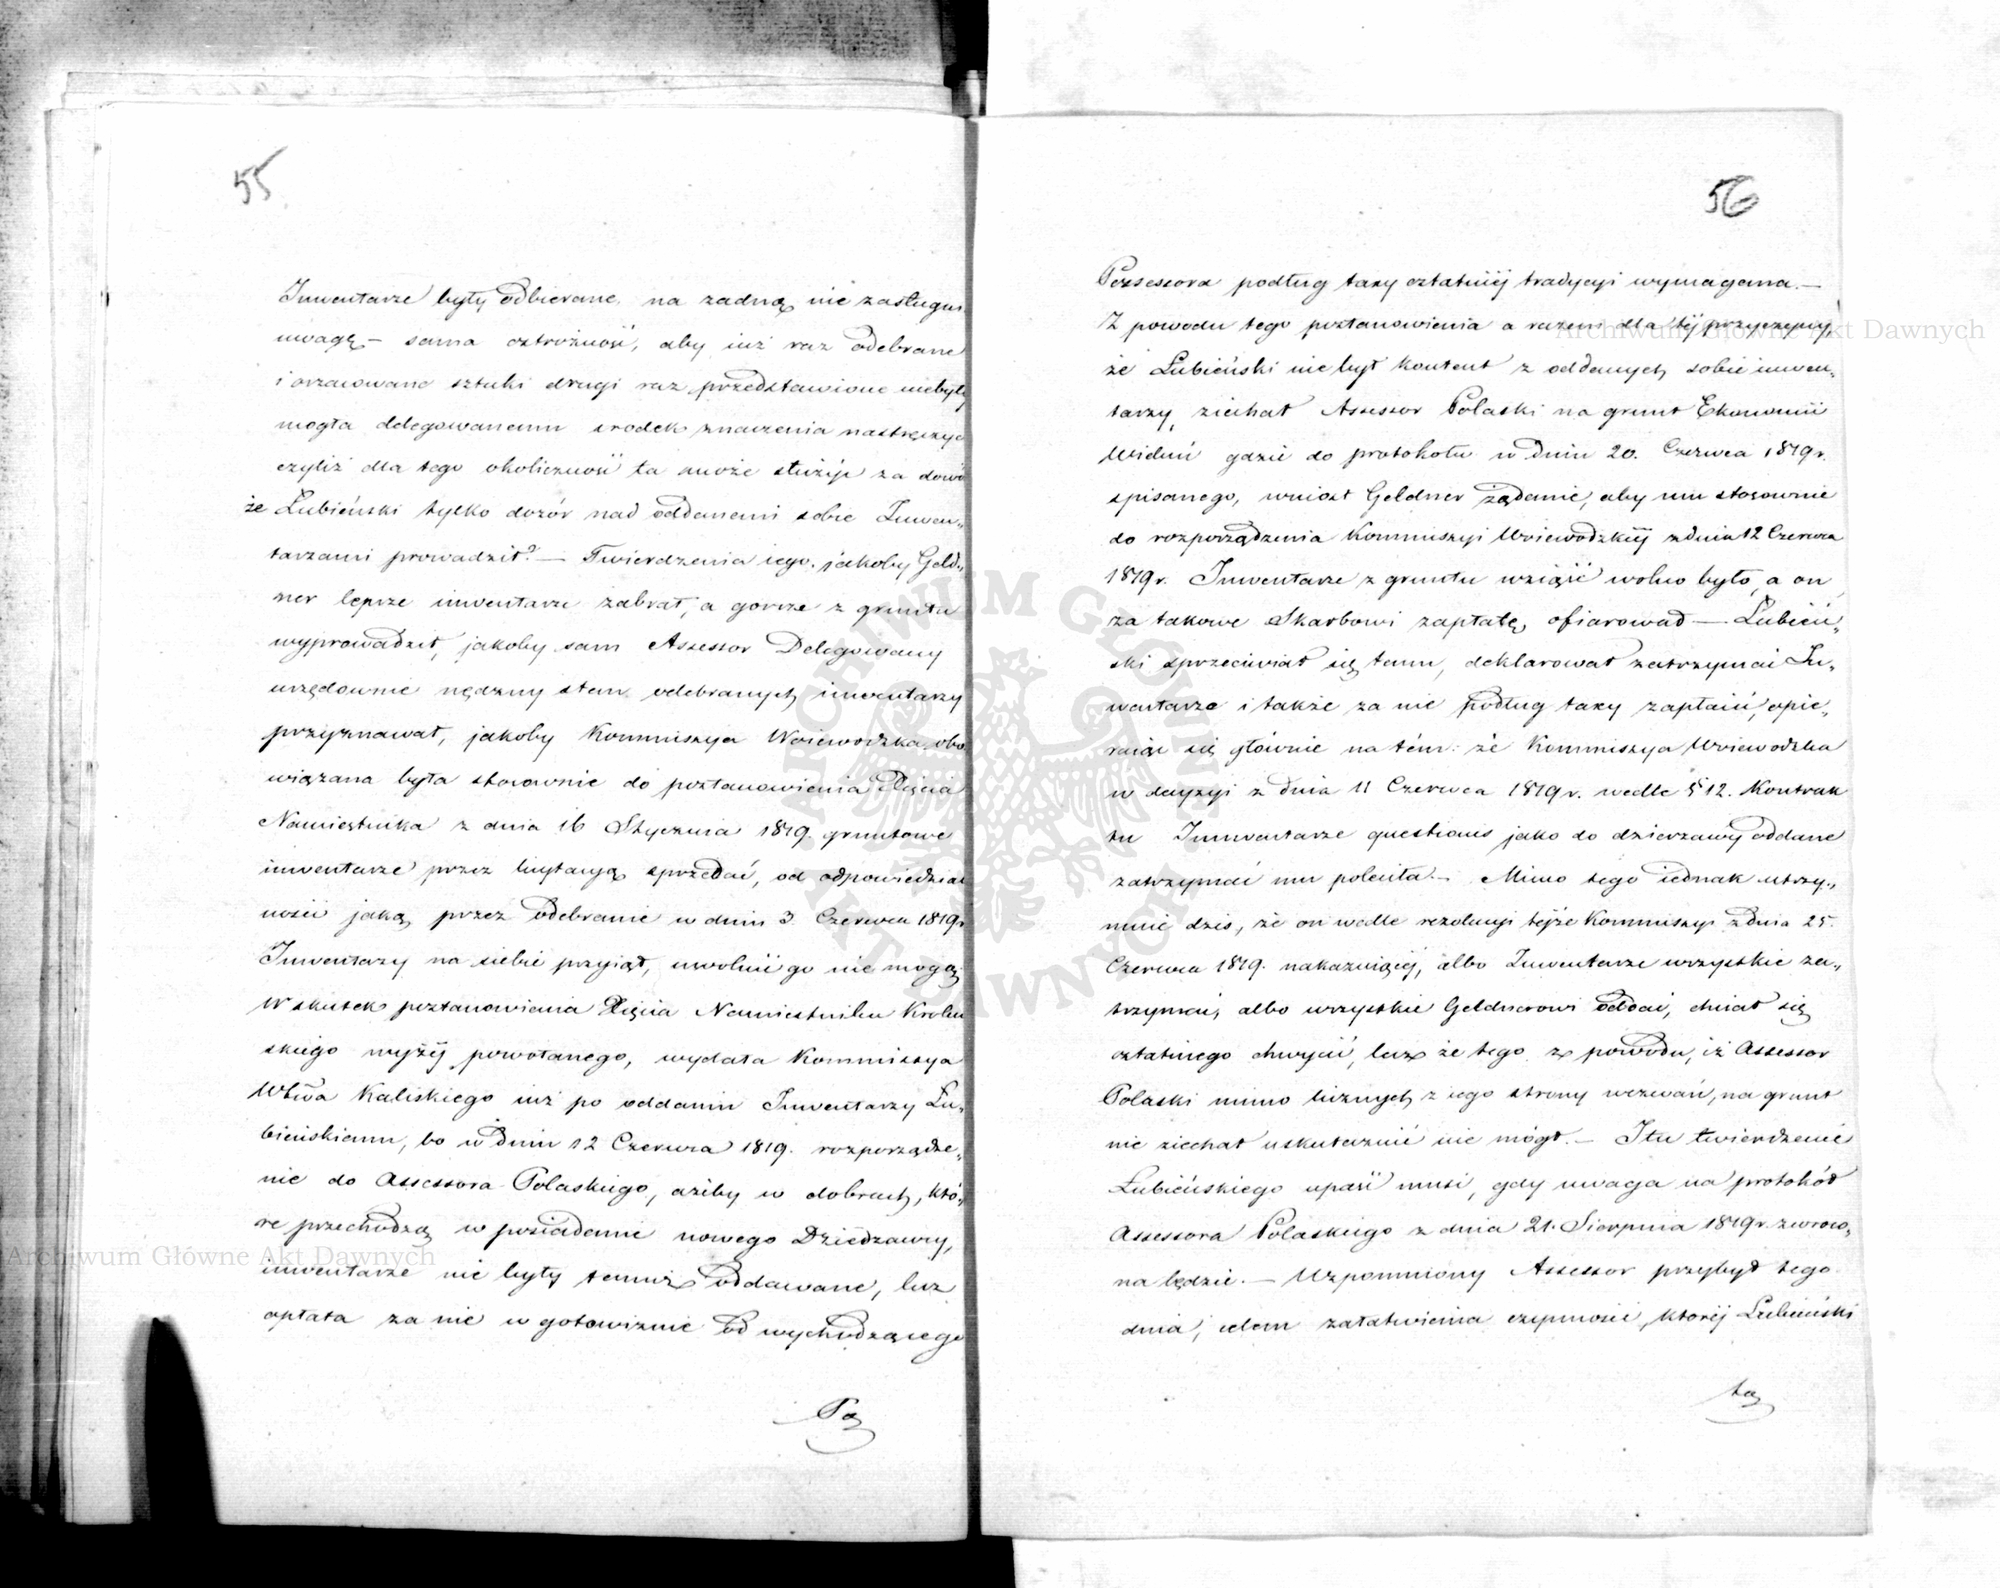 55
Inwentarze były odbierane, na zadną nie zasługu
uwagę – sama ostrożność, aby iuż raz odebrane
i oszacowane sztuki drugi raz przedstawione niebyły
mogła delegowanemu srodek znaczenia nastręczyć
czyliż dla tego okoliczność ta może służyć za dowó
że Łubieński tylko dozór nad oddanemi sobie Inwen„
tarzami prowadził? – Twierdzenia iego, jakoby Geld„
ner lepsze inwentarze zabrał, a gorsze z gruntu
wyprowadził, jakoby sam Assessor Delegowany
urzędownie nędzny stan odebranych inwentarzy
przyznawał, jakoby Kommissya Woiewodzka obo
wiązana była stosownie do postanowienia Xięcia
Namiestnika z dnia 16 Stycznia 1819. gruntowe
inwentarze przez licytacyą sprzedać, od odpowiedzial
ności jaką przez odebranie w dniu 3. Czerwca 1819r
Inwentarzy na siebie przyiął, uwolnić go nie mogą.
W skutek postanowienia Xięcia Namiestnika Królew
skiego wyżéj powołanego, wydała Kommissya
Wtwa Kaliskiego iuż po oddaniu Inwentarzy Łu„
bieńskiemu, bo w dniu 12 Czerwca 1819. rozporządze„
nie do Assessora Polaskiego, ażeby w dobrach, któ„
re przechodzą w posiadanie nowego Dzierzawcy,
inwentarze nie były temuż oddawane, lecz
opłata za nie w gotowiznie od wychodzącego
Po
56
Possessora podług taxy ostatniéj tradycyi wymagana. –
Z powodu tego postanowienia a razem dla téj przyczyny,
że Łubieński nie był kontent z oddanych sobie inwen„
tarzy, ziechał Assessor Polaski na grunt Ekonomii
Wieluń gdzie do protokołu w dniu 20. Czerwca 1819r.
spisanego, wniósł Geldner żądanie, aby mu stosownie
do rozporządzenia Kommissyi Woiewodzkiéj z dnia 12 Czerwca
1819r. Inwentarze z gruntu wziąść wolno było, a on
za takowe Skarbowi zapłatę ofiarował – Łubień„
ski sprzeciwiał się temu, deklarował zatrzymać In„
wentarze i także za nie podług taxy zapłacić, opie„
raiąc się głównie na tém: że Kommissya Woiewodzka
w decyzyi z dnia 11 Czerwca 1819r. wedle § 12. Kontrak
tu Inwentarze questionis jako do dzierzawy oddane
zatrzymać mu poleciła. – Mimo tego iednak utrzy„
muie dzis, że on wedle rezolucyi tejże Kommissyi z dnia 25.
Czerwca 1819. nakazuiącéj, albo Inwentarze wszystkie za„
trzymać, albo wszystkie Geldnerowi oddać, chciał się
ostatniego chwycić, lecz że tego z powodu, iż Assessor
Polaski mimo licznych z iego strony wezwań, na grunt
nie ziechał uskutecznić nie mógł. – I tu twierdzenie
Łubieńskiego upaść musi, gdy uwaga na protokół
Assessora Polaskiego z dnia 21. Sierpnia 1819r. zwroco„
na będzie. – Wspomniony Assessor przybył tego
dnia, celem załatwienia czynności, któréj Łubieński
ta
Archiwum Główne Akt Dawnych
Archiwum Główne Akt Dawnych
ARCHIWUM GŁÓWNE AKT DAWNYCH